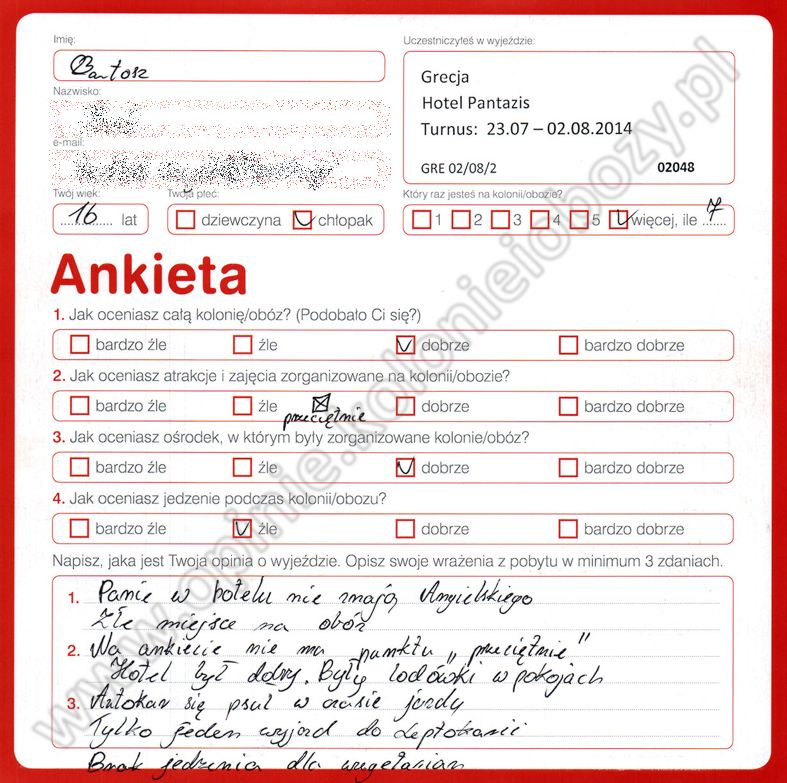 Imię:
Bartosz
Nazwisko:
e-mail:
Twój wiek:
16 lat
Twoja płeć:
dziewczyna chłopak
Uczestniczyłeś w wyjeździe:
Grecja
Hotel Pantazis
Turnus: 23.07 – 02.08.2014
GRE 02/08/2 02048
Który raz jesteś na kolonii/obozie?
1 2 3 4 5 więcej, ile 7
Ankieta
1. Jak oceniasz całą kolonię/obóz? (Podobało Ci się?)
bardzo źle źle dobrze bardzo dobrze
2. Jak oceniasz atrakcje i zajęcia zorganizowane na kolonii/obozie?
bardzo źle źle przeciętnie dobrze bardzo dobrze
3. Jak oceniasz ośrodek, w którym były zorganizowane kolonie/obóz?
bardzo źle źle dobrze bardzo dobrze
4. Jak oceniasz jedzenie podczas kolonii/obozu?
bardzo źle źle dobrze bardzo dobrze
Napisz, jaka jest Twoja opinia o wyjeździe. Opisz swoje wrażenia z pobytu w minimum 3 zdaniach.
1. Panie w hotelu nie znają Angielskiego
Złe miejsce na obóz
2. Na ankiecie nie ma punktu „przeciętnie"
Hotel był dobry. Były lodówki w pokojach
3. Autokar się psuł w czasie jazdy
Tylko jeden wyjazd do Leptokarii
Brak jedzenia dla wegetarian
www.opinie.kolonieiobozy.pl